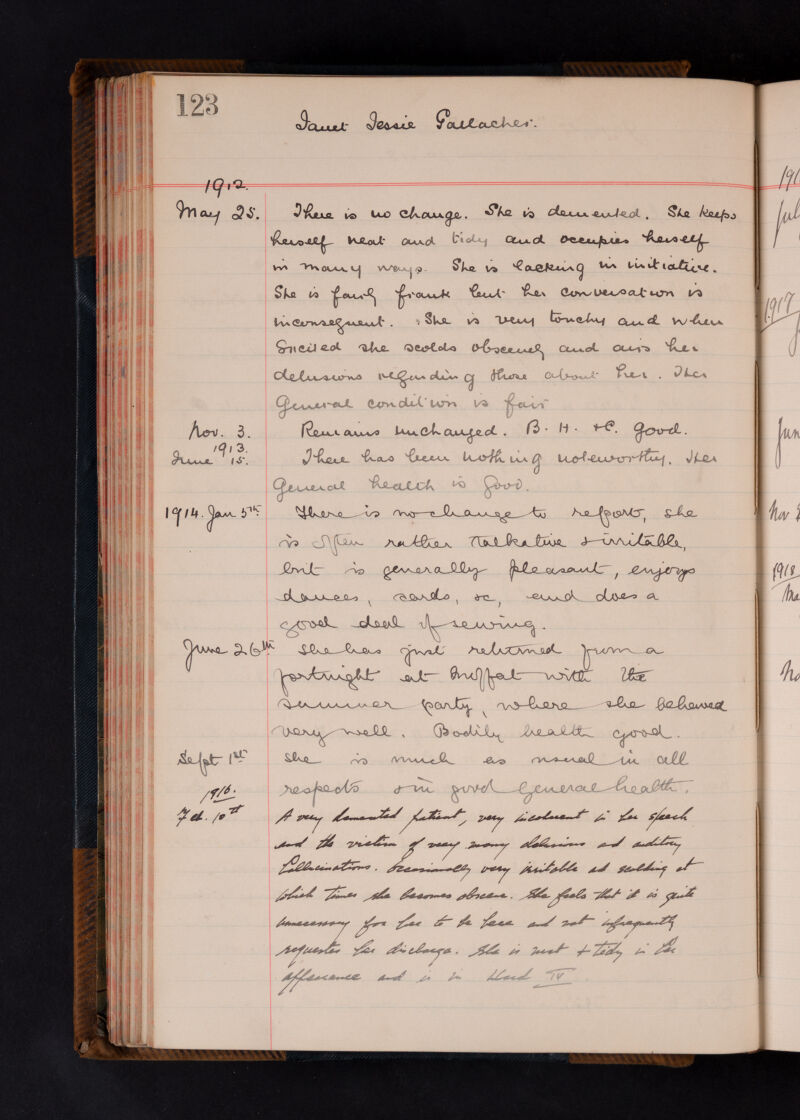 123
Janet Jessie Gallacher.
1912.
May 25. There is no change. She is demented. She keeps
herself neat and tidy and occupies herself
in many ways. She is lacking in initiative.
She is fairly frank but her conversation is
inconsequent. She is very touchy and when
Excited she scolds obscenely and airs her
delusions regarding those about her. Her
General condition is fair
Nov. 3. Remains unchanged. B. H. & C. good.
1913.
June 15. There has been nothing noteworthy. Her
General health is Good.
1914. Jan 5th There is no change to report, she
is often rather talkative & irritable,
but is generally pleasant, enjoys
dances, cards, &c, and does a
good deal of sewing.
June 26th She has just returned from a
fortnight at Moffat with the
summer party, where she behaved
very well. Bodily health good.
Sept 1st She is much as usual in all
respects & in good general health.
1916.
Feb. 10th A very demented patient, very incoherent in her speech
and the victim of very many delusions and auditory
hallucinations. Occasionally very irritable and scolding at
which times she becomes obscene. She feels that it is quite
unnecessary for her to be here and not infrequently
requests her discharge. She is neat & tidy in her
appearance and is in Ward IV.
191
Jul
1917
J
Jun
Nov
1918
Ma
No